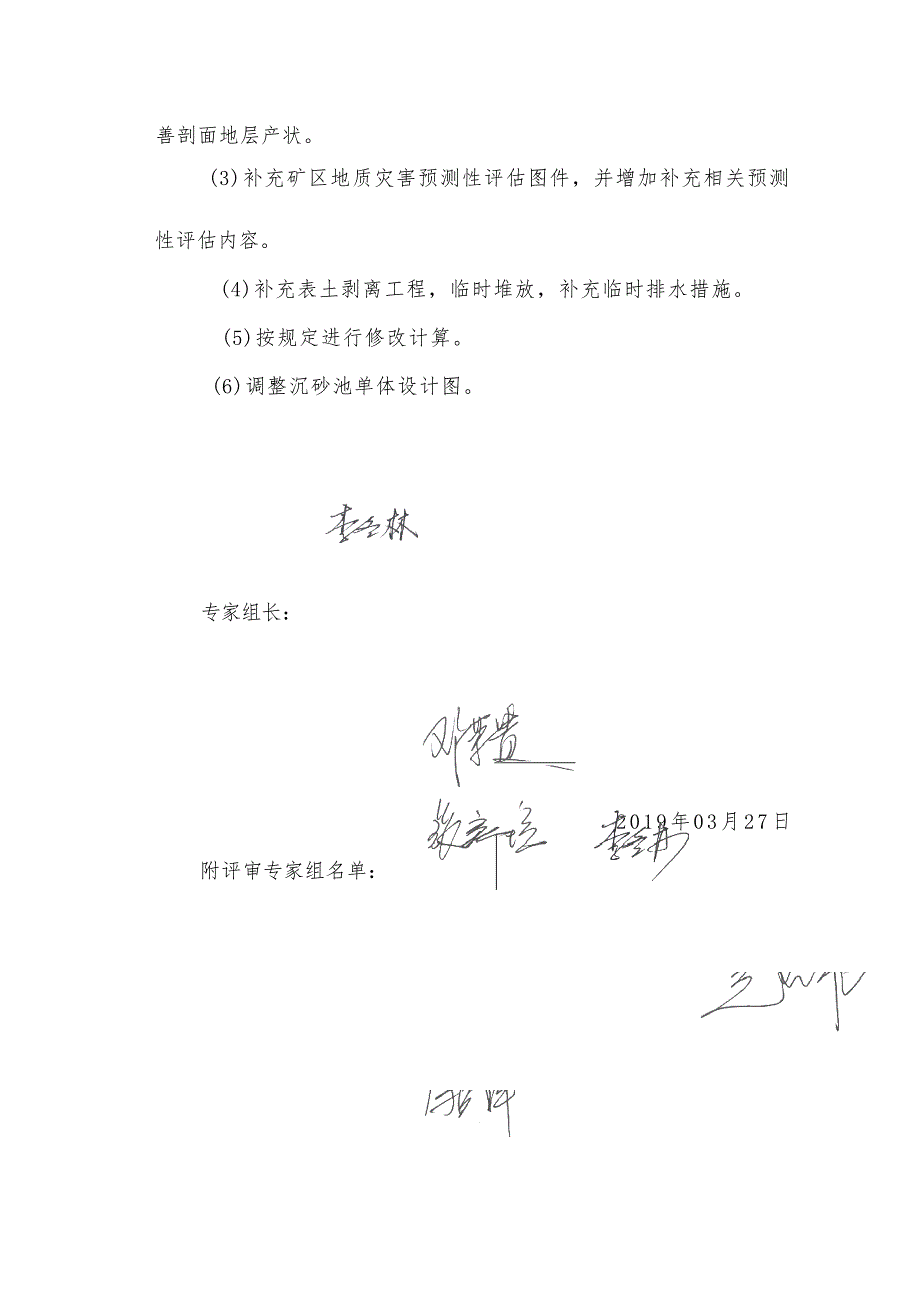 善剖面地层产状。
(3)补充矿区地质灾害预测性评估图件，并增加补充相关预测
性评估内容。
(4)补充表土剥离工程，临时堆放，补充临时排水措施。
(5)按规定进行修改计算。
(6)调整沉砂池单体设计图。
专家组长：
2019年03月27日
附评审专家组名单：